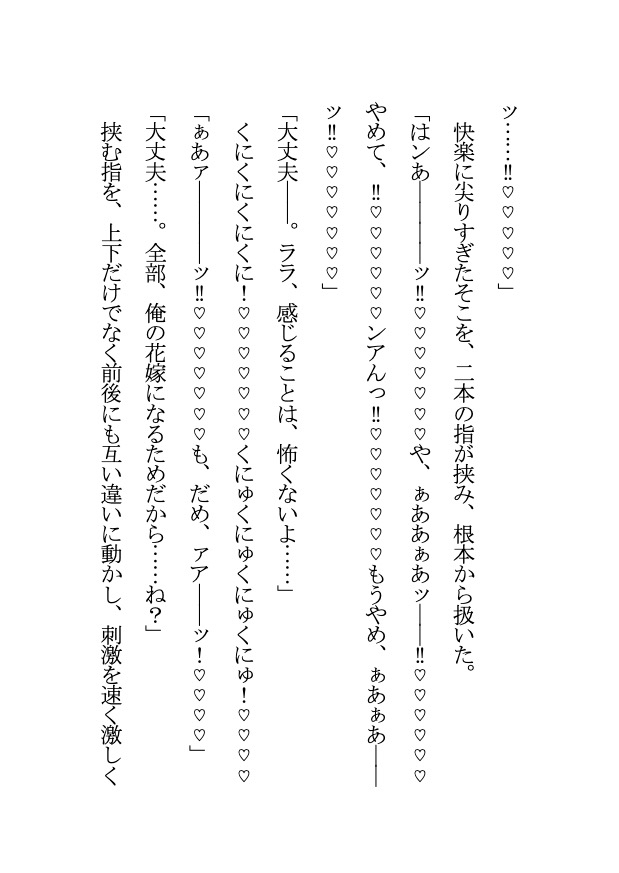 ッ……‼♡♡♡♡♡」
　快楽に尖りすぎたそこを、二本の指が挟み、根本から扱いた。
「はンあ――――ッ‼♡♡♡♡♡♡♡や、ぁああぁあッ――‼♡♡♡♡♡♡
やめて、‼♡♡♡♡♡♡ンアんっ‼♡♡♡♡♡♡♡もうやめ、ぁあぁあ――
ッ‼♡♡♡♡♡♡♡」
「大丈夫――。ララ、感じることは、怖くないよ……」
　くにくにくにくに！♡♡♡♡♡♡♡♡くにゅくにゅくにゅくにゅ！♡♡♡♡
「ぁあァ――――ッ‼♡♡♡♡♡♡♡も、だめ、ァア――ッ！♡♡♡♡」
「大丈夫……。全部、俺の花嫁になるためだから……ね？」
　挟む指を、上下だけでなく前後にも互い違いに動かし、刺激を速く激しく